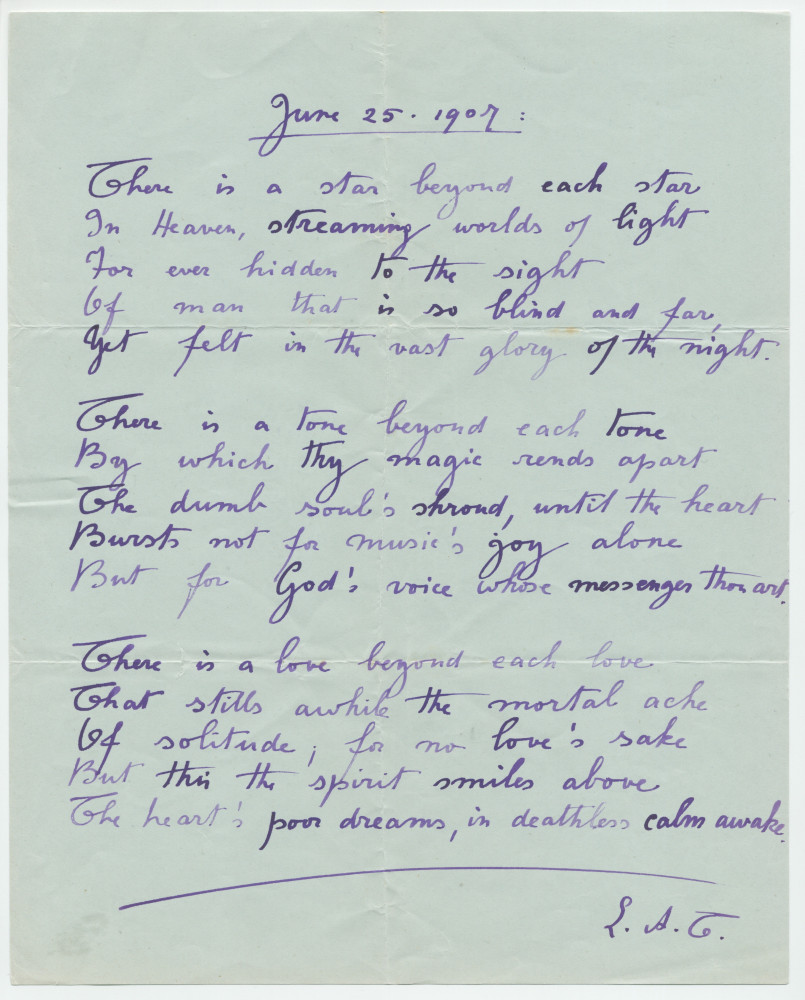 June 25. 1907:
There is a star beyond each star
In Heaven, streaming worlds of light
For ever hidden to the sight
Of man that is so blind and far,
Yet felt in the vast glory of the night.
There is a tone beyond each tone
By which thy magic rends apart
The dumb soul's shroud, until the heart
Bursts not for music's joy alone
But for God's voice whose messenger thou art.
There is a love beyond each love
That stills awhile the mortal ache
Of solitude; for no love's sake
But this the spirit smiles above
The heart's poor dreams, in deathless calm awake.
L. A. T.